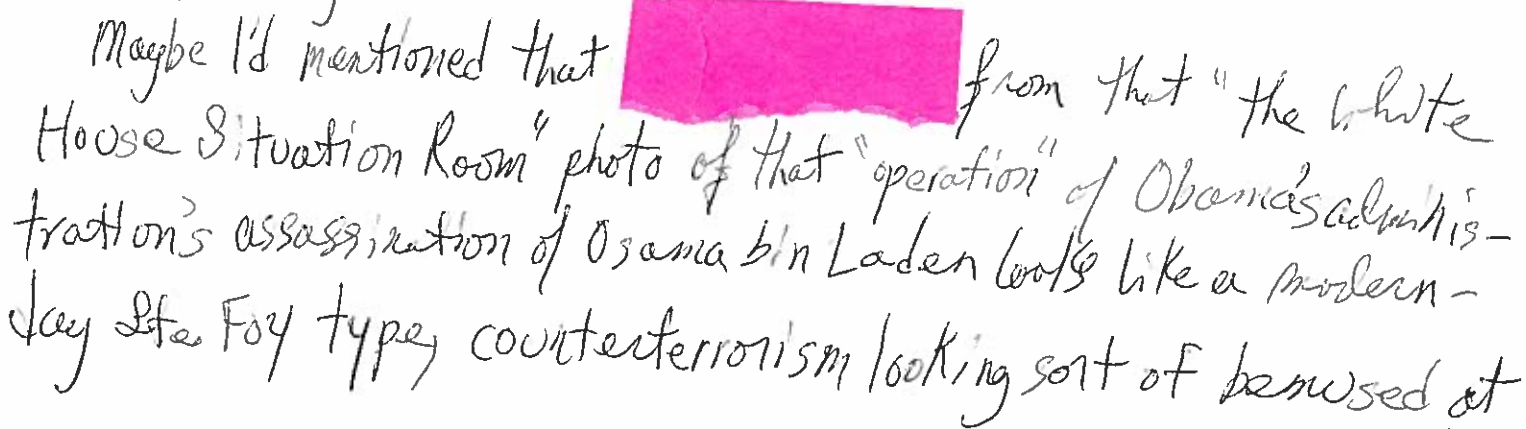 Maybe I'd mentioned that from that "the White
House Situation Room" photo of that "operation" of Obama's adminis-
tration's assassination of Osama bin Laden looks like a modern-
day Ste. Foy type, counterterrorism looking sort of bemused at